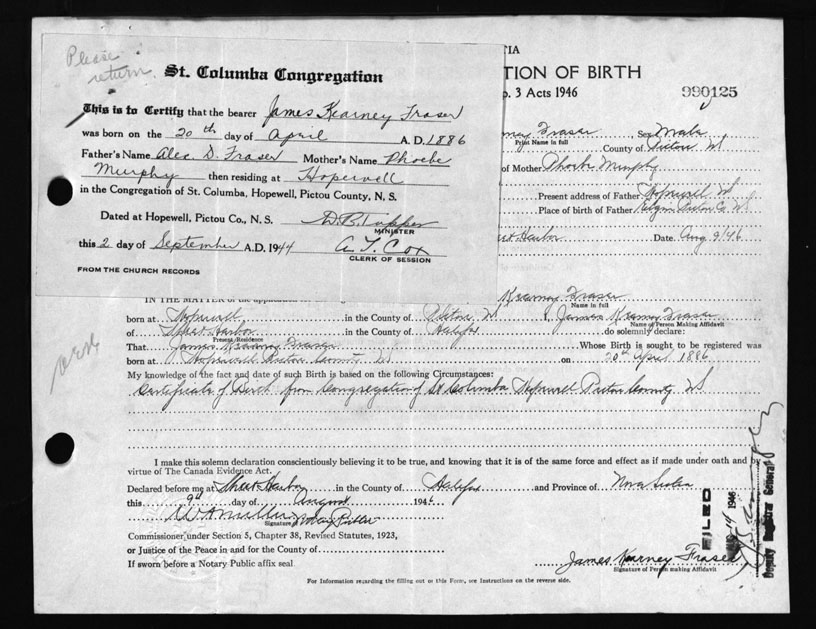 Please
return
St. Columba Congregation
This is to Certify that the bearer James Kearney Fraser
was born on the 20th day of April A.D. 1886
Father's Name Alec D. Fraser Mother's Name Phoebe
Murphy then residing at Hopewell
in the Congregation of St. Columba, Hopewell, Pictou County, N. S.
Dated at Hopewell, Pictou Co., N. S. D. R. Tupper
MINISTER
this 2 day of September A.D. 1944 A. T. Cox
CLERK OF SESSION
FROM THE CHURCH RECORDS
TIA
TION OF BIRTH
p. 3 Acts 1946
990125
Fraser Sex Male
Print Name in full
County of Pictou NS
of Mother Phoebe Murphy
Present address of Father Hopewell NS
Place of birth of Father Pictou Co NS
Harbor Date Aug 9/46
IN THE MATTER of the application for Kearney Fraser
Name in full
born at Hopewell in the County of Pictou NS I, James Kearney Fraser
Name of Person Making Affidavit
of Sheet Harbor in the County of Halifax do solemnly declare:
Present Residence
That James Kearney Fraser Whose Birth is sought to be registered was
born at Hopewell Pictou County NS on 20th April 1886
My knowledge of the fact and date of such Birth is based on the following Circumstances:
Certificate of Birth from Congregation of St Columba Hopewell Pictou County NS
I make this solemn declaration conscientiously believing it to be true, and knowing that it is of the same force and effect as if made under oath and by
virtue of The Canada Evidence Act.
Declared before me at Sheet Harbor in the County of Halifax and Province of Nova Scotia
this 9th day of August 1946
Signature of
Commissioner under Section 5, Chapter 38, Revised Statutes, 1923,
or Justice of the Peace in and for the County of
If sworn before a Notary Public affix seal
James Kearney Fraser
Signature of Person making Affidavit
For Information regarding the filling out of this Form, see Instructions on the reverse side.
FILED
14 1946
Deputy Registrar General